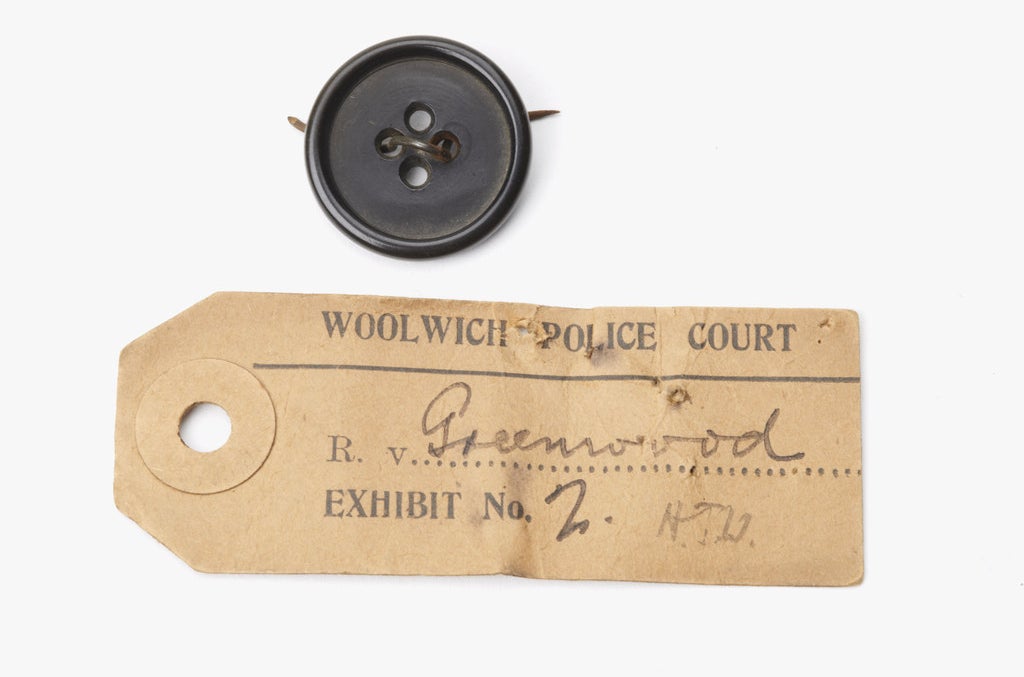 WOOLWICH POLICE COURT
R. v. Greenwood
EXHIBIT No. 2. H.T.W.